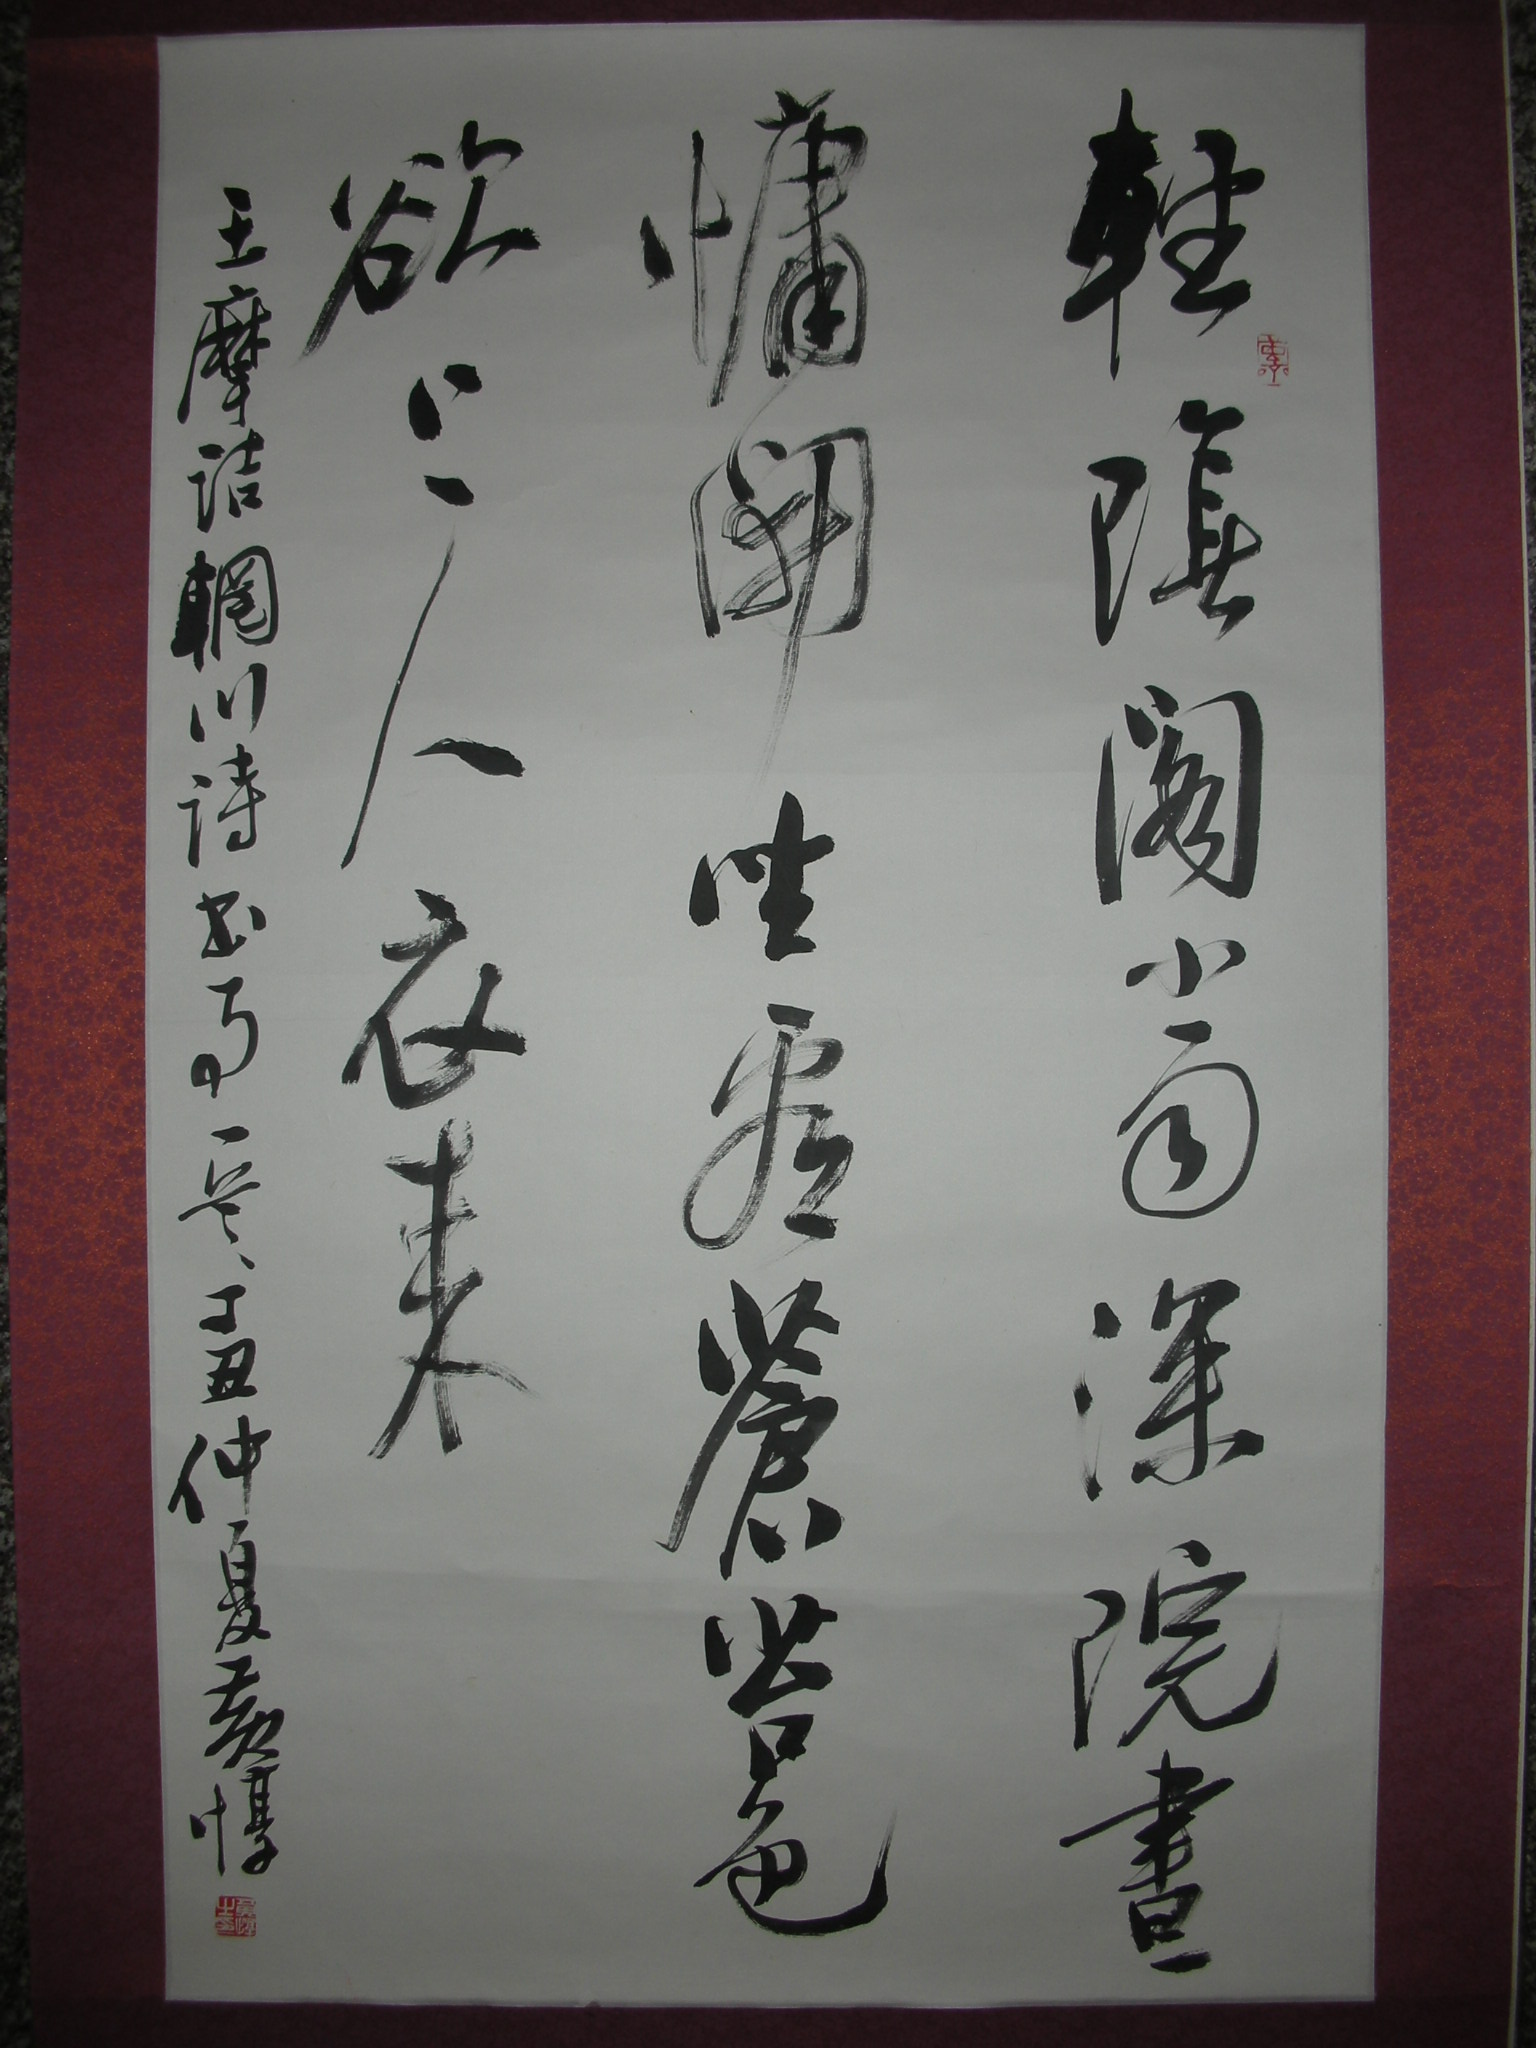 軽陰閣小雨深院晝
慵開坐看蒼苔色
欲上人衣来
王摩詰輞川詩 丁丑仲夏黄惇